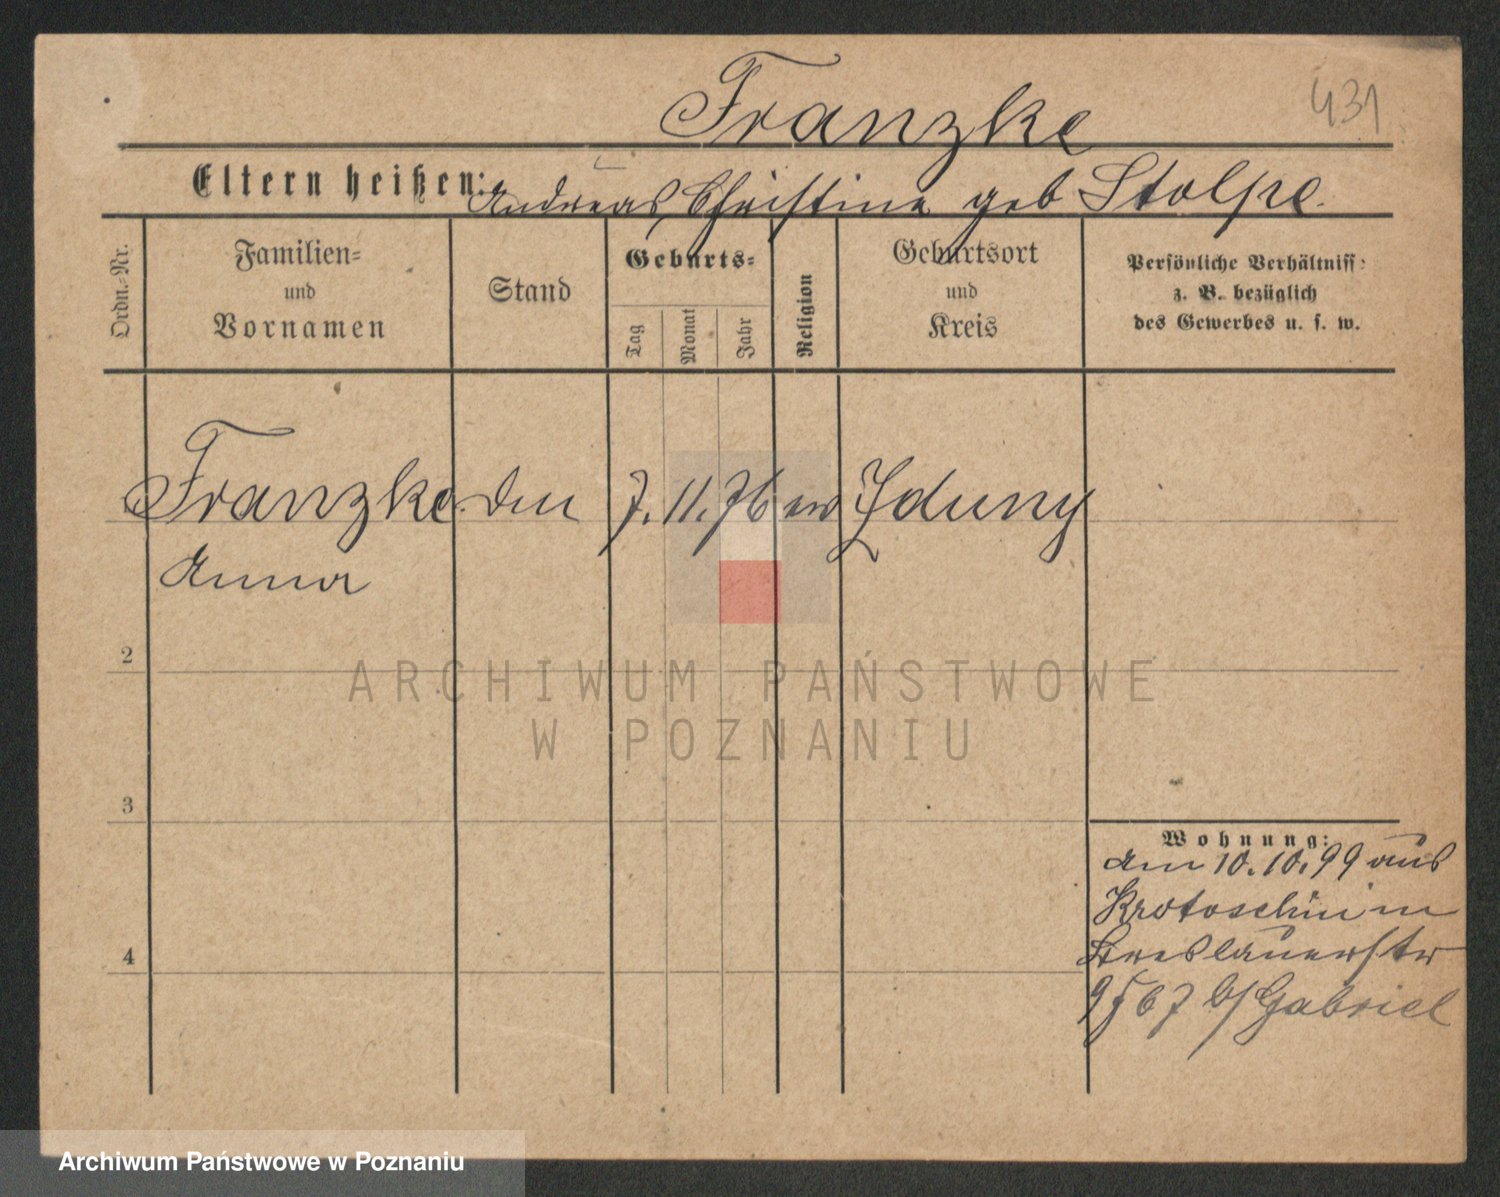 Franzke
431
Eltern heißen: Andreas, Christine geb Stolpe.
Ordn.-Nr.
Familien-
und
Vornamen
Stand
Geburts-
Tag
Monat
Jahr
Religion
Geburtsort
und
Kreis
Persönliche Verhältniss-
z. B. bezüglich
des Gewerbes u. s. w.
Franzke 7. 11. 76 ev Zduny
Anna
2
3
4
ARCHIWUM PAŃSTWOWE
W POZNANIU
Wohnung:
am 10.10.99 aus
Krotoschin in
Breslauerstr
b/Gabriel
Archiwum Państwowe w Poznaniu